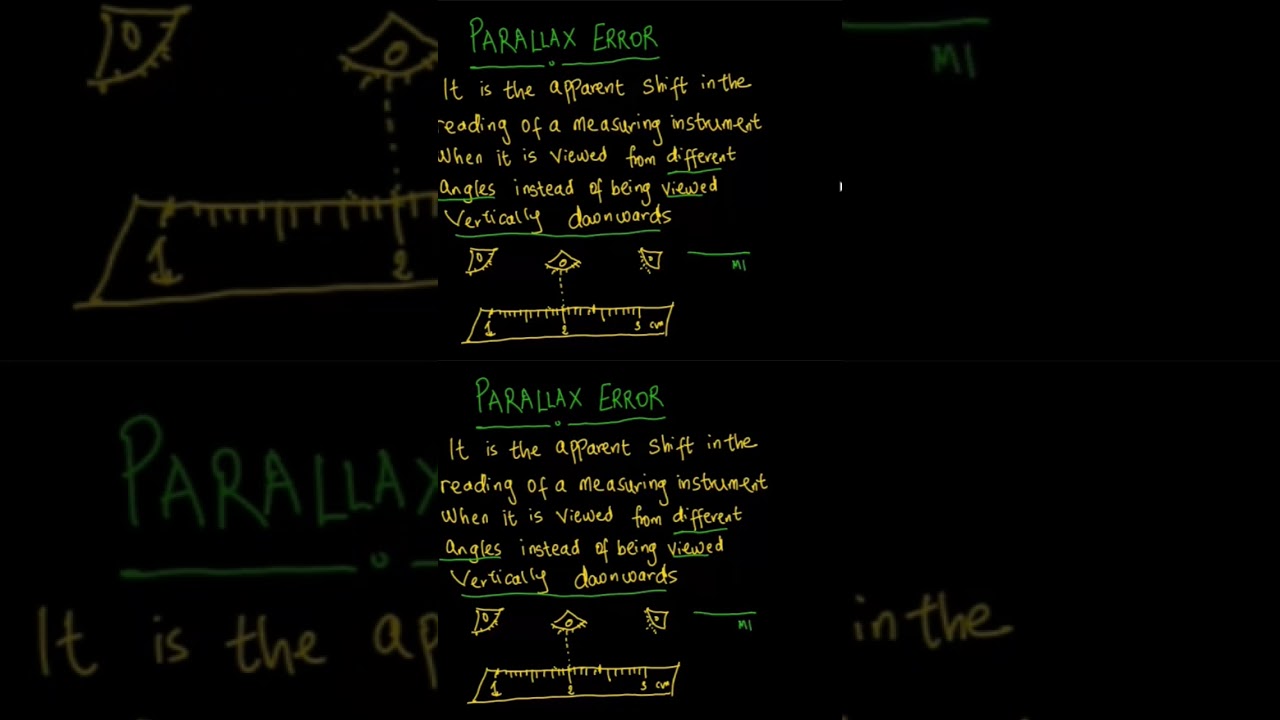 PARALLAX ERROR
It is the apparent shift in the
reading of a measuring instrument
When it is viewed from different
angles instead of being viewed
Vertically daonwards
M1
1 2 3 cm
PARALLAX ERROR
It is the apparent shift in the
reading of a measuring instrument
When it is viewed from different
angles instead of being viewed
Vertically daonwards
M1
1 2 3 cm
1 2
M1
PARALLAX
It is the ap
in the